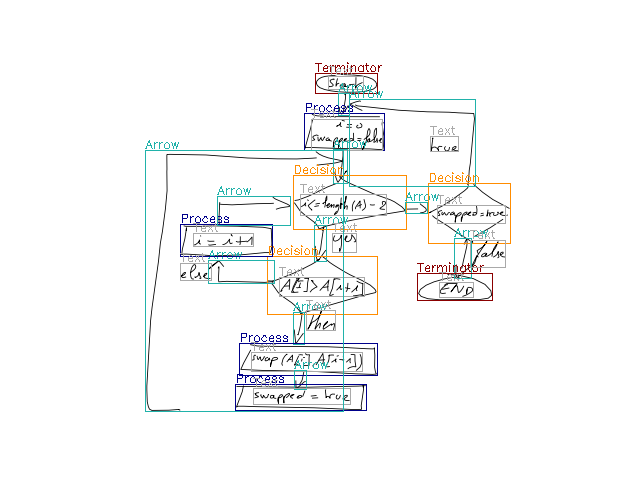 Terminator
Start
Arrow
Arrow
Process
Text
i = 0
swapped = false
Text
true
Arrow
Arrow
Decision
Text
i <= length (A) - 2
Arrow
Arrow
Decision
Text
swapped = true
Process
Text
i = i + 1
Arrow
Text
yes
Arrow
Text
false
Decision
Text
A[I] > A[i+i]
Text
else
Arrow
Terminator
Text
END
Arrow
Text
then
Process
Text
swap (A[i], A[i-i])
Arrow
Process
Text
swapped = true